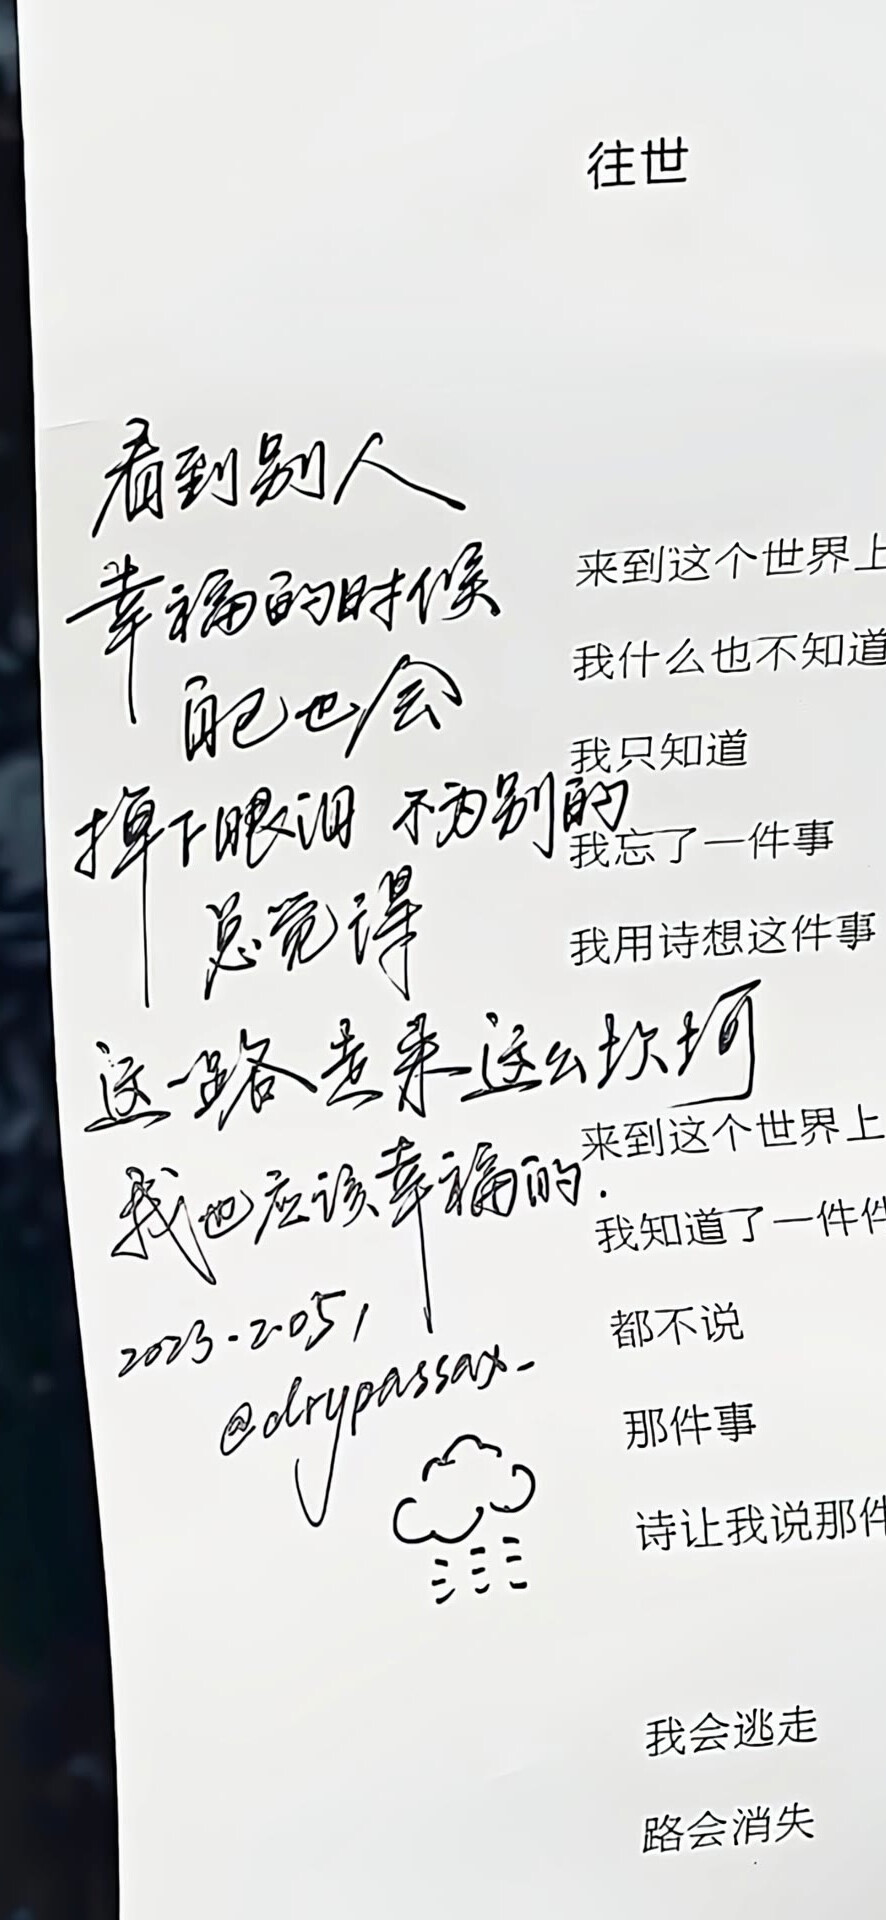 往世
看到别人
幸福的时候
自己也会
掉下眼泪 不为别的
总觉得
这一路走来这么坎坷
我也应该幸福的.
2023.2.05,
@drypassax_
来到这个世界上
我什么也不知道
我只知道
我忘了一件事
我用诗想这件事
来到这个世界上
我知道了一件件
都不说
那件事
诗让我说那件
我会逃走
路会消失